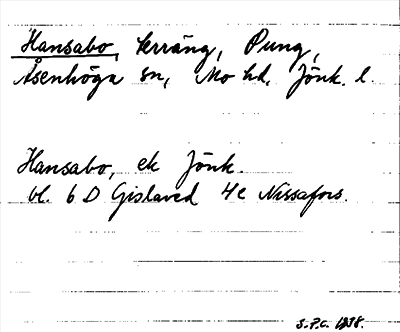 Hansabo, terräng, Pung,
Åsenhöga sn, Mo hd, Jönk. l.
Hansabo, ek Jönk.
bl. 6 D Gislaved 4e Nissafors.
S.P.C. 1938.